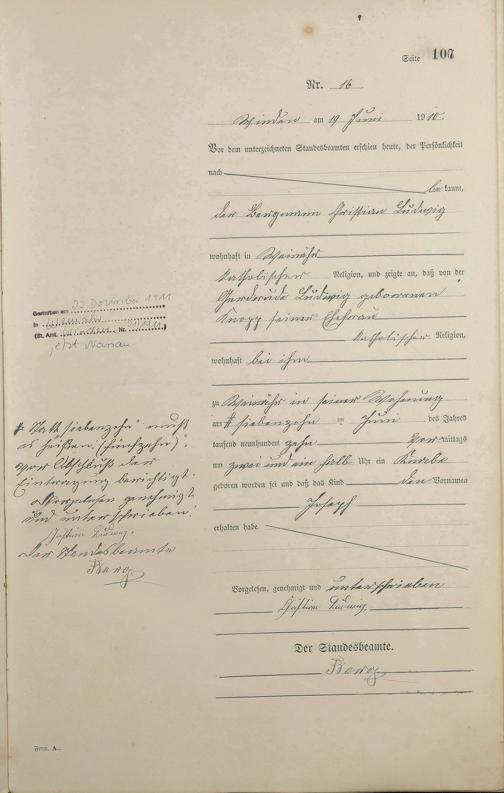 Seite 107
Nr. 16
Winden am 19 Juni 1910.
Vor dem unterzeichneten Standesbeamten erschien heute, der Persönlichkeit
nach
be kannt,
der Bergmann Christian Ludwig
wohnhaft in Weinähr
katholischer Religion, und zeigte an, daß von der
Ludwig geborenen
Knopp seiner Ehefrau
katholischer Religion,
wohnhaft bei ihm
zu Weinähr in seiner Wohnung
am # siebenzehn Juni des Jahres
tausend neunhundert zehn Vor mittags
um zwei und ein halb Uhr ein Knabe
geboren worden sei und daß das Kind den Vornamen
Joseph
erhalten habe.
Vorgelesen, genehmigt und unterschrieben
Christian Ludwig
Der Standesbeamte.
Gestorben am 22 Dezember 1911
in Weinähr
Nr. 21/1911
jetzt Nassau
# Statt "siebenzehn" muß
es heißen: (fünfzehn)".
Vor Abschluß der
Eintragung berichtigt.
Vorgelesen genehmigt
und unterschrieben.
Christian Ludwig.
Der Standesbeamte
Form. A.